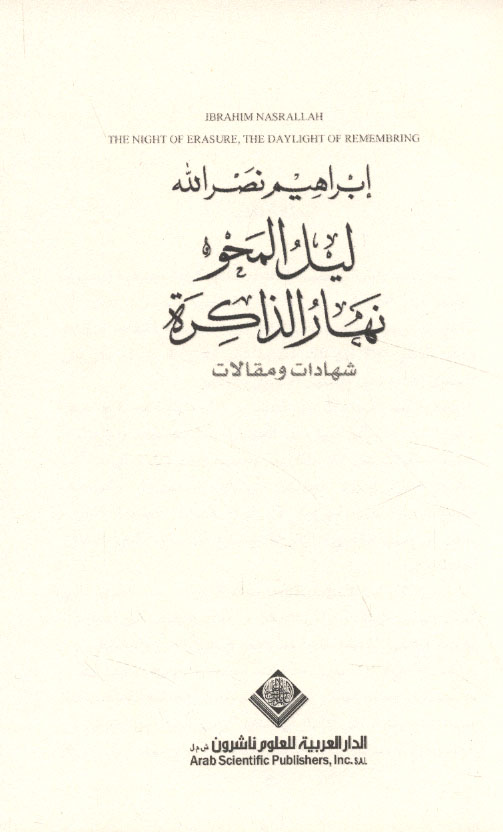 IBRAHIM NASRALLAH
THE NIGHT OF ERASURE, THE DAYLIGHT OF REMEMBRING
إبْراهِيْم نصَرْ الله
ليْلُ المَحْو،
نهَارُ الذاكِرَة
شهادات ومقالات
الدار العربية للعلوم ناشرون ش.م.ل
Arab Scientific Publishers, Inc. S.A.L